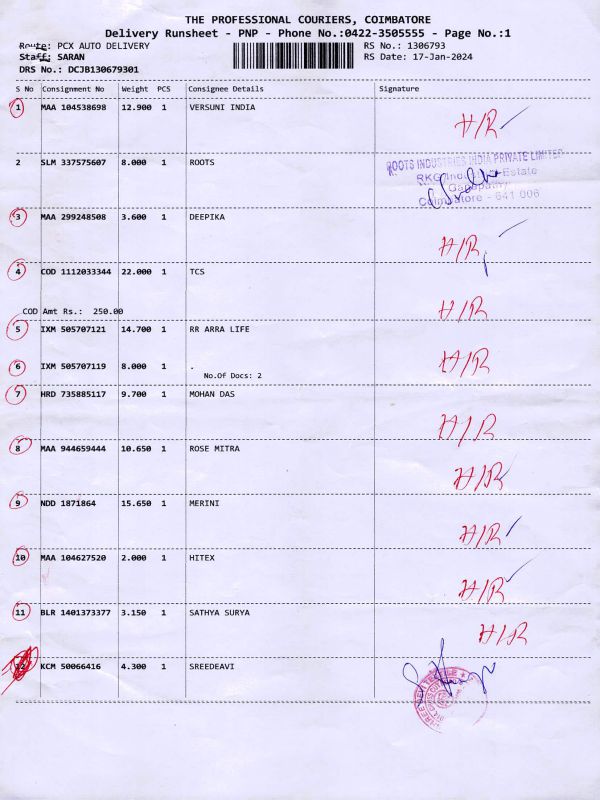 THE PROFESSIONAL COURIERS, COIMBATORE
Delivery Runsheet - PNP - Phone No.:0422-3505555 - Page No.:1
Route: PCX AUTO DELIVERY RS No.: 1306793
Staff: SARAN RS Date: 17-Jan-2024
DRS No.: DCJB130679301
S No Consignment No Weight PCS Consignee Details Signature
1 MAA 104538698 12.900 1 VERSUNI INDIA
H/R
2 SLM 337575607 8.000 1 ROOTS
ROOTS INDUSTRIES INDIA PRIVATE LIMITED
RKG Estate
Ganapathy
Coimbatore - 641 006
3 MAA 299248508 3.600 1 DEEPIKA
H/R
4 COD 1112033344 22.000 1 TCS
H/R
COD Amt Rs.: 250.00
5 IXM 505707121 14.700 1 RR ARRA LIFE
H/R
6 IXM 505707119 8.000 1 .
No.Of Docs: 2
7 HRD 735885117 9.700 1 MOHAN DAS
H/R
8 MAA 944659444 10.650 1 ROSE MITRA
H/R
9 NDD 1871864 15.650 1 MERINI
H/R
10 MAA 104627520 2.000 1 HITEX
H/R
11 BLR 1401373377 3.150 1 SATHYA SURYA
H/R
12 KCM 50066416 4.300 1 SREEDEAVI